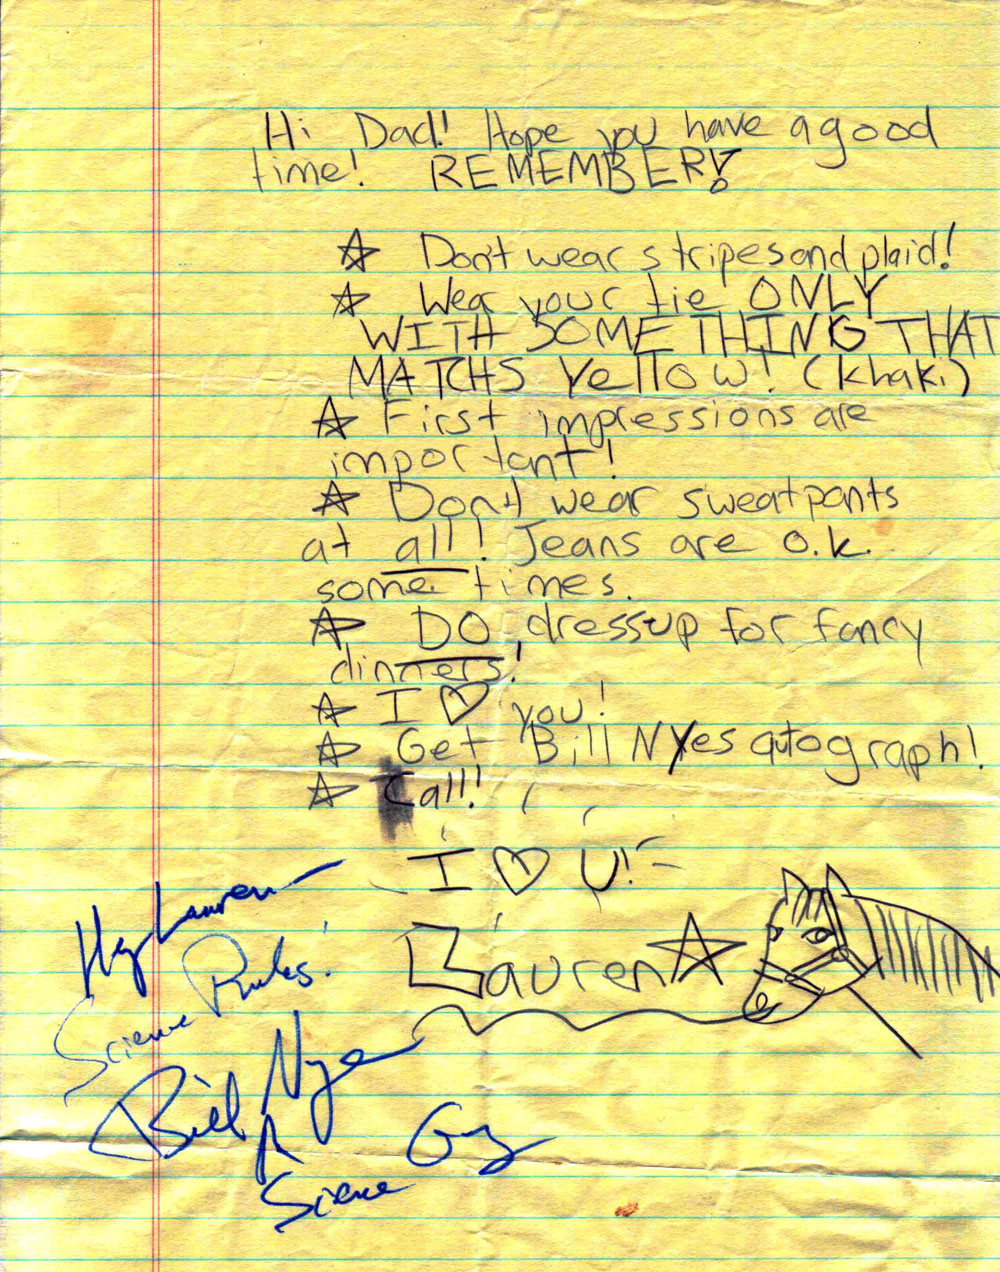 Hi Dad! Hope you have a good
time! REMEMBER!
Don't wear stripes and plaid!
Wear your tie ONLY
WITH SOMETHING THAT
MATCHS Yellow! (khaki)
First impressions are
important!
Don't wear sweatpants
at all! Jeans are o.k.
some times.
DO dress up for fancy
dinners!
I ♡ you!
Get Bill Nyes autograph!
Call!
I ♡ U!
Lauren
Hey Lauren –
Science Rules!
Bill Nye
Science Guy